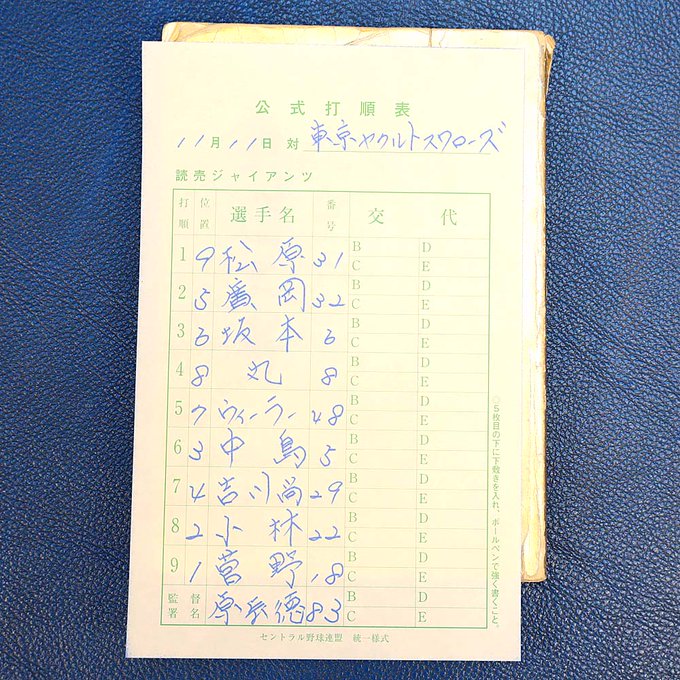 公式打順表
11月11日 対 東京ヤクルトスワローズ
読売ジャイアンツ
打順 位置 選手名 番号 交代
1 9 松原 31 B D C E
2 5 廣岡 32 B D C E
3 6 坂本 6 B D C E
4 8 丸 8 B D C E
5 7 ウィーラー 48 B D C E
6 3 中島 5 B D C E
7 4 吉川尚 29 B D C E
8 2 小林 22 B D C E
9 1 菅野 18 B D C E
監督署名 原辰徳 83 B D C E
セントラル野球連盟 統一様式
○5枚目の下に下敷きを入れ、ボールペンで強く書くこと。